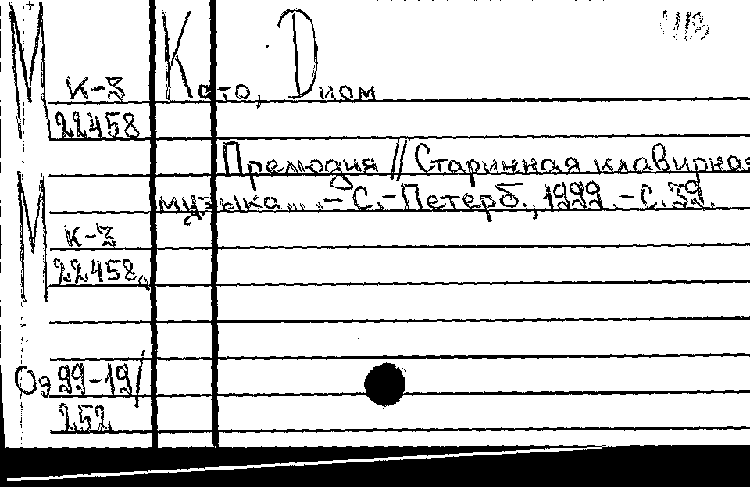 М К-3
22458
Като, Диом
Прелюдия // Старинная клавирная
музыка... - С.-Петерб., 1999. - С. 39.
М К-3
22458а
Оэ 99-19/
252